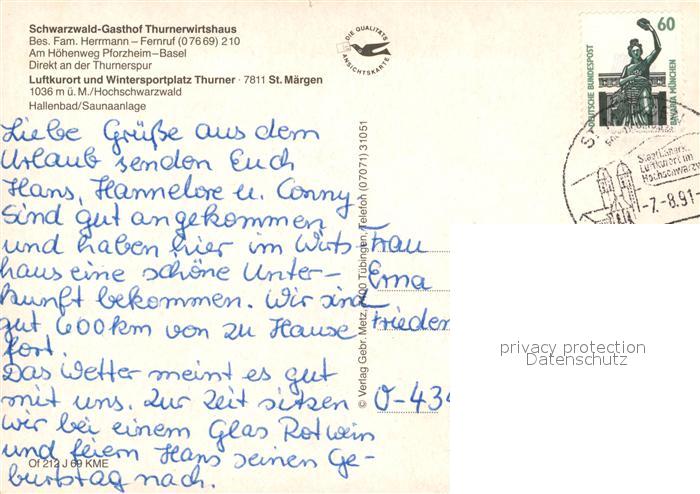 Schwarzwald-Gasthof Thurnerwirtshaus
Bes. Fam. Herrmann – Fernruf (0 76 69) 210
Am Höhenweg Pforzheim–Basel
Direkt an der Thurnerspur
Luftkurort und Wintersportplatz Thurner · 7811 St. Märgen
1036 m ü. M./Hochschwarzwald
Hallenbad/Saunaanlage
DIE QUALITÄTS
ANSICHTSKARTE
60
DEUTSCHE BUNDESPOST
BAVARIA MÜNCHEN
Luftkurort im
Hochschwarzw
-7.-8.91-
Liebe Grüße aus dem
Urlaub senden Euch
Hans, Hannelore u. Conny
Sind gut angekommen
und haben hier im Wirts-
haus eine schöne Unter-
kunft bekommen. Wir sind
gut 600 km von zu Hause
fort.
Das Wetter meint es gut
mit uns. Zur Zeit sitzen
wir bei einem Glas Rotwein
und feiern Hans seinen Ge-
burtstag nach.
Of 212 J 69 KME
© Verlag Gebr. Metz, 7400 Tübingen, Telefon (07071) 31051
Frau
Erna
Frieden
O-434
privacy protection
Datenschutz